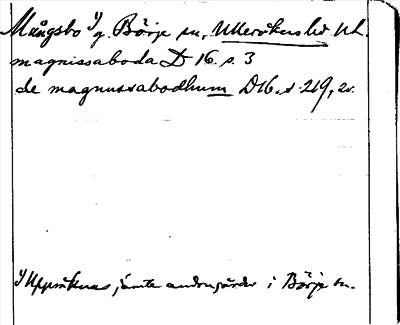 Mångsbo 1) g. Börje sn, Ulleråkers hd Upl.
magnissaboda D 16. s. 3
de magnussabodhum D16. s. 219, 21.
1) Uppräknas jämte andra gårdar i Börje sn.